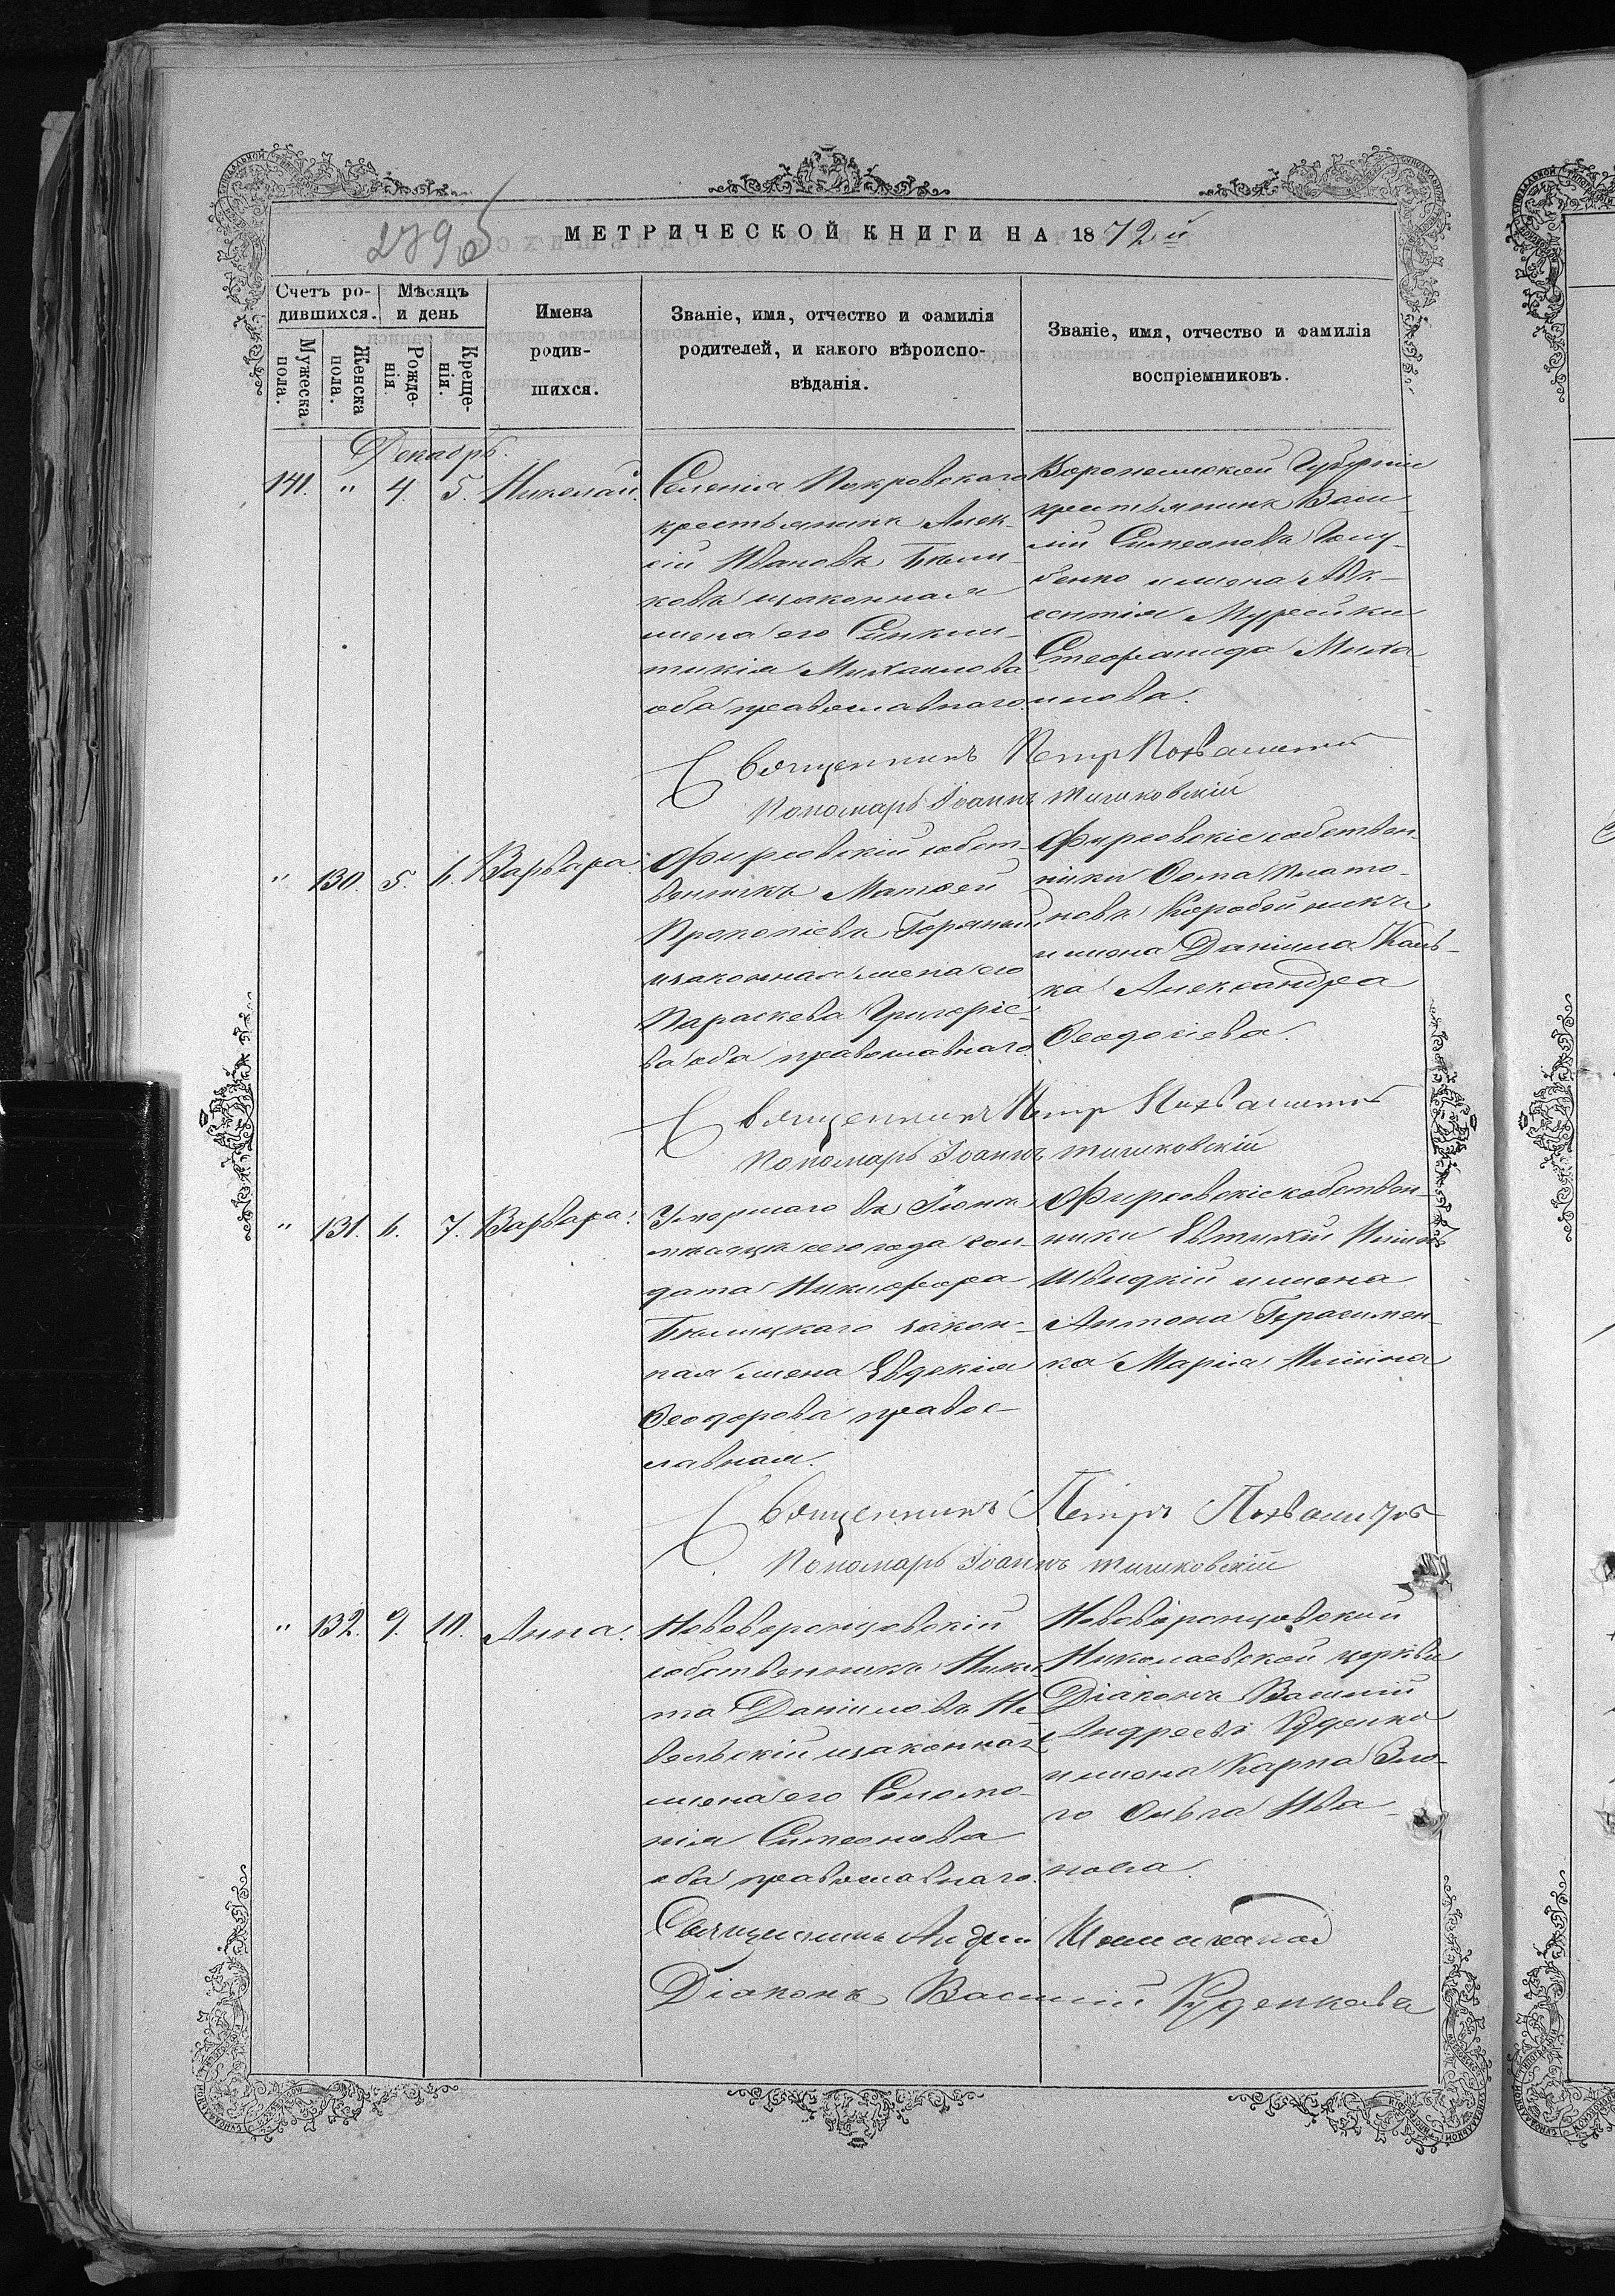 279 об
МЕТРИЧЕСКОЙ КНИГИ НА 1872й
Счетъ ро-
дившихся.
Мужеска
пола.
Женска
пола.
Мѣсяцъ
и день
Рожде-
нія
Креще-
нія.
Имена
родив-
шихся.
Званіе, имя, отчество и фамилія
родителей, и какого вѣроиспо-
вѣданія.
Званіе, имя, отчество и фамилія
воспріемниковъ.
Декабрь.
141. " 4. 5. Николай.
Селенія Покровскаго
крестьянинъ Алек-
сій Ивановъ
ковъ изаконная
жена его Синкли-
тикія Михаилова
оба православнаго.
Воронежской Губерніи
крестьянинъ Васи-
лій Симеоновъ Голу-
бенко и жена Авк-
сентія Мурейки
Стефанида Миха
илова.
Священникъ Петр
Пономарь Іоаннъ Тишковскій
" 130. 5. 6. Варвара.
Фирсовскій собст-
венникъ Матѳей
Прокопіевъ Горяной
изаконная жена его
Параскева Григоріе-
ва оба православнаго.
Фирсовскіе собствен-
ники Ѳома Плато-
новъ Коробойникъ
и жена Даніила Каль-
ка Александра
Ѳеодосіева.
Священникъ Петр
Пономарь Іоаннъ Тишковскій
" 131. 6. 7. Варвара.
Умершаго въ Іюнѣ
мѣсяцѣ сего года сол-
дата Никифора
Бѣлицкаго закон-
ная жена Евдокія
Ѳеодорова право-
славная.
Фирсовскіе собствен-
ники Евтихій
Швидкій и жена
Антона Герасимен-
ка Марія Ильина
Священникъ Петръ
Пономарь Іоаннъ Тишковскій
" 132. 9. 10. Анна.
Нововоронцовскій
собственникъ Ники-
та Даніиловъ Не-
вельскій изаконная
жена его Соломо-
нія Симеонова
оба православнаго.
Нововоронцовскій
Николаевской церкви
Діаконъ Василій
Андреевъ Руденко
и жена Карпа Зло-
го Ольга Ива-
нова.
Священникъ Андрей
Діаконъ Василій Руденковъ